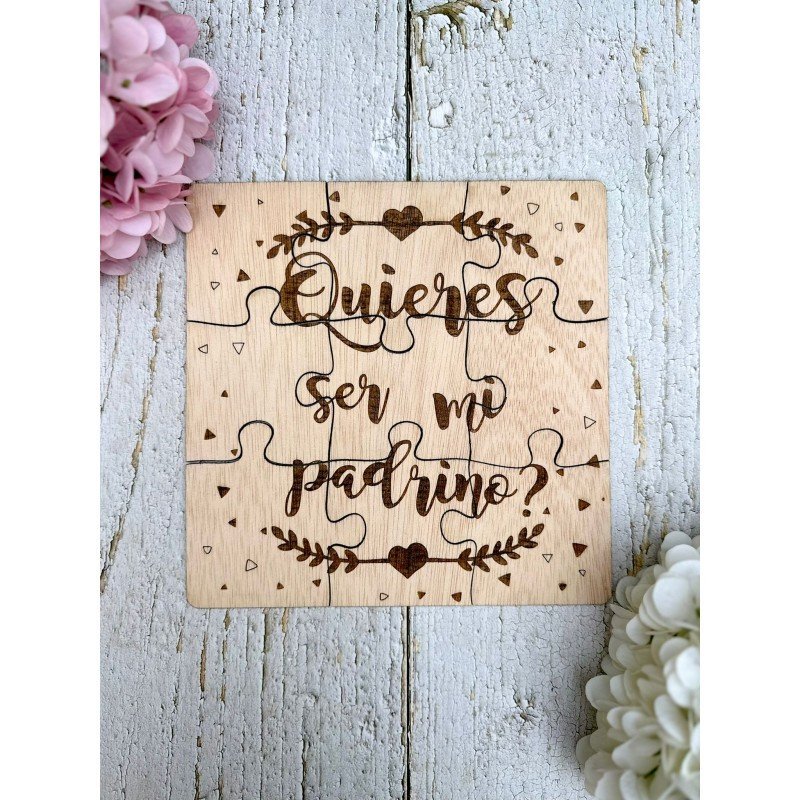 Quieres
ser mi
padrino?